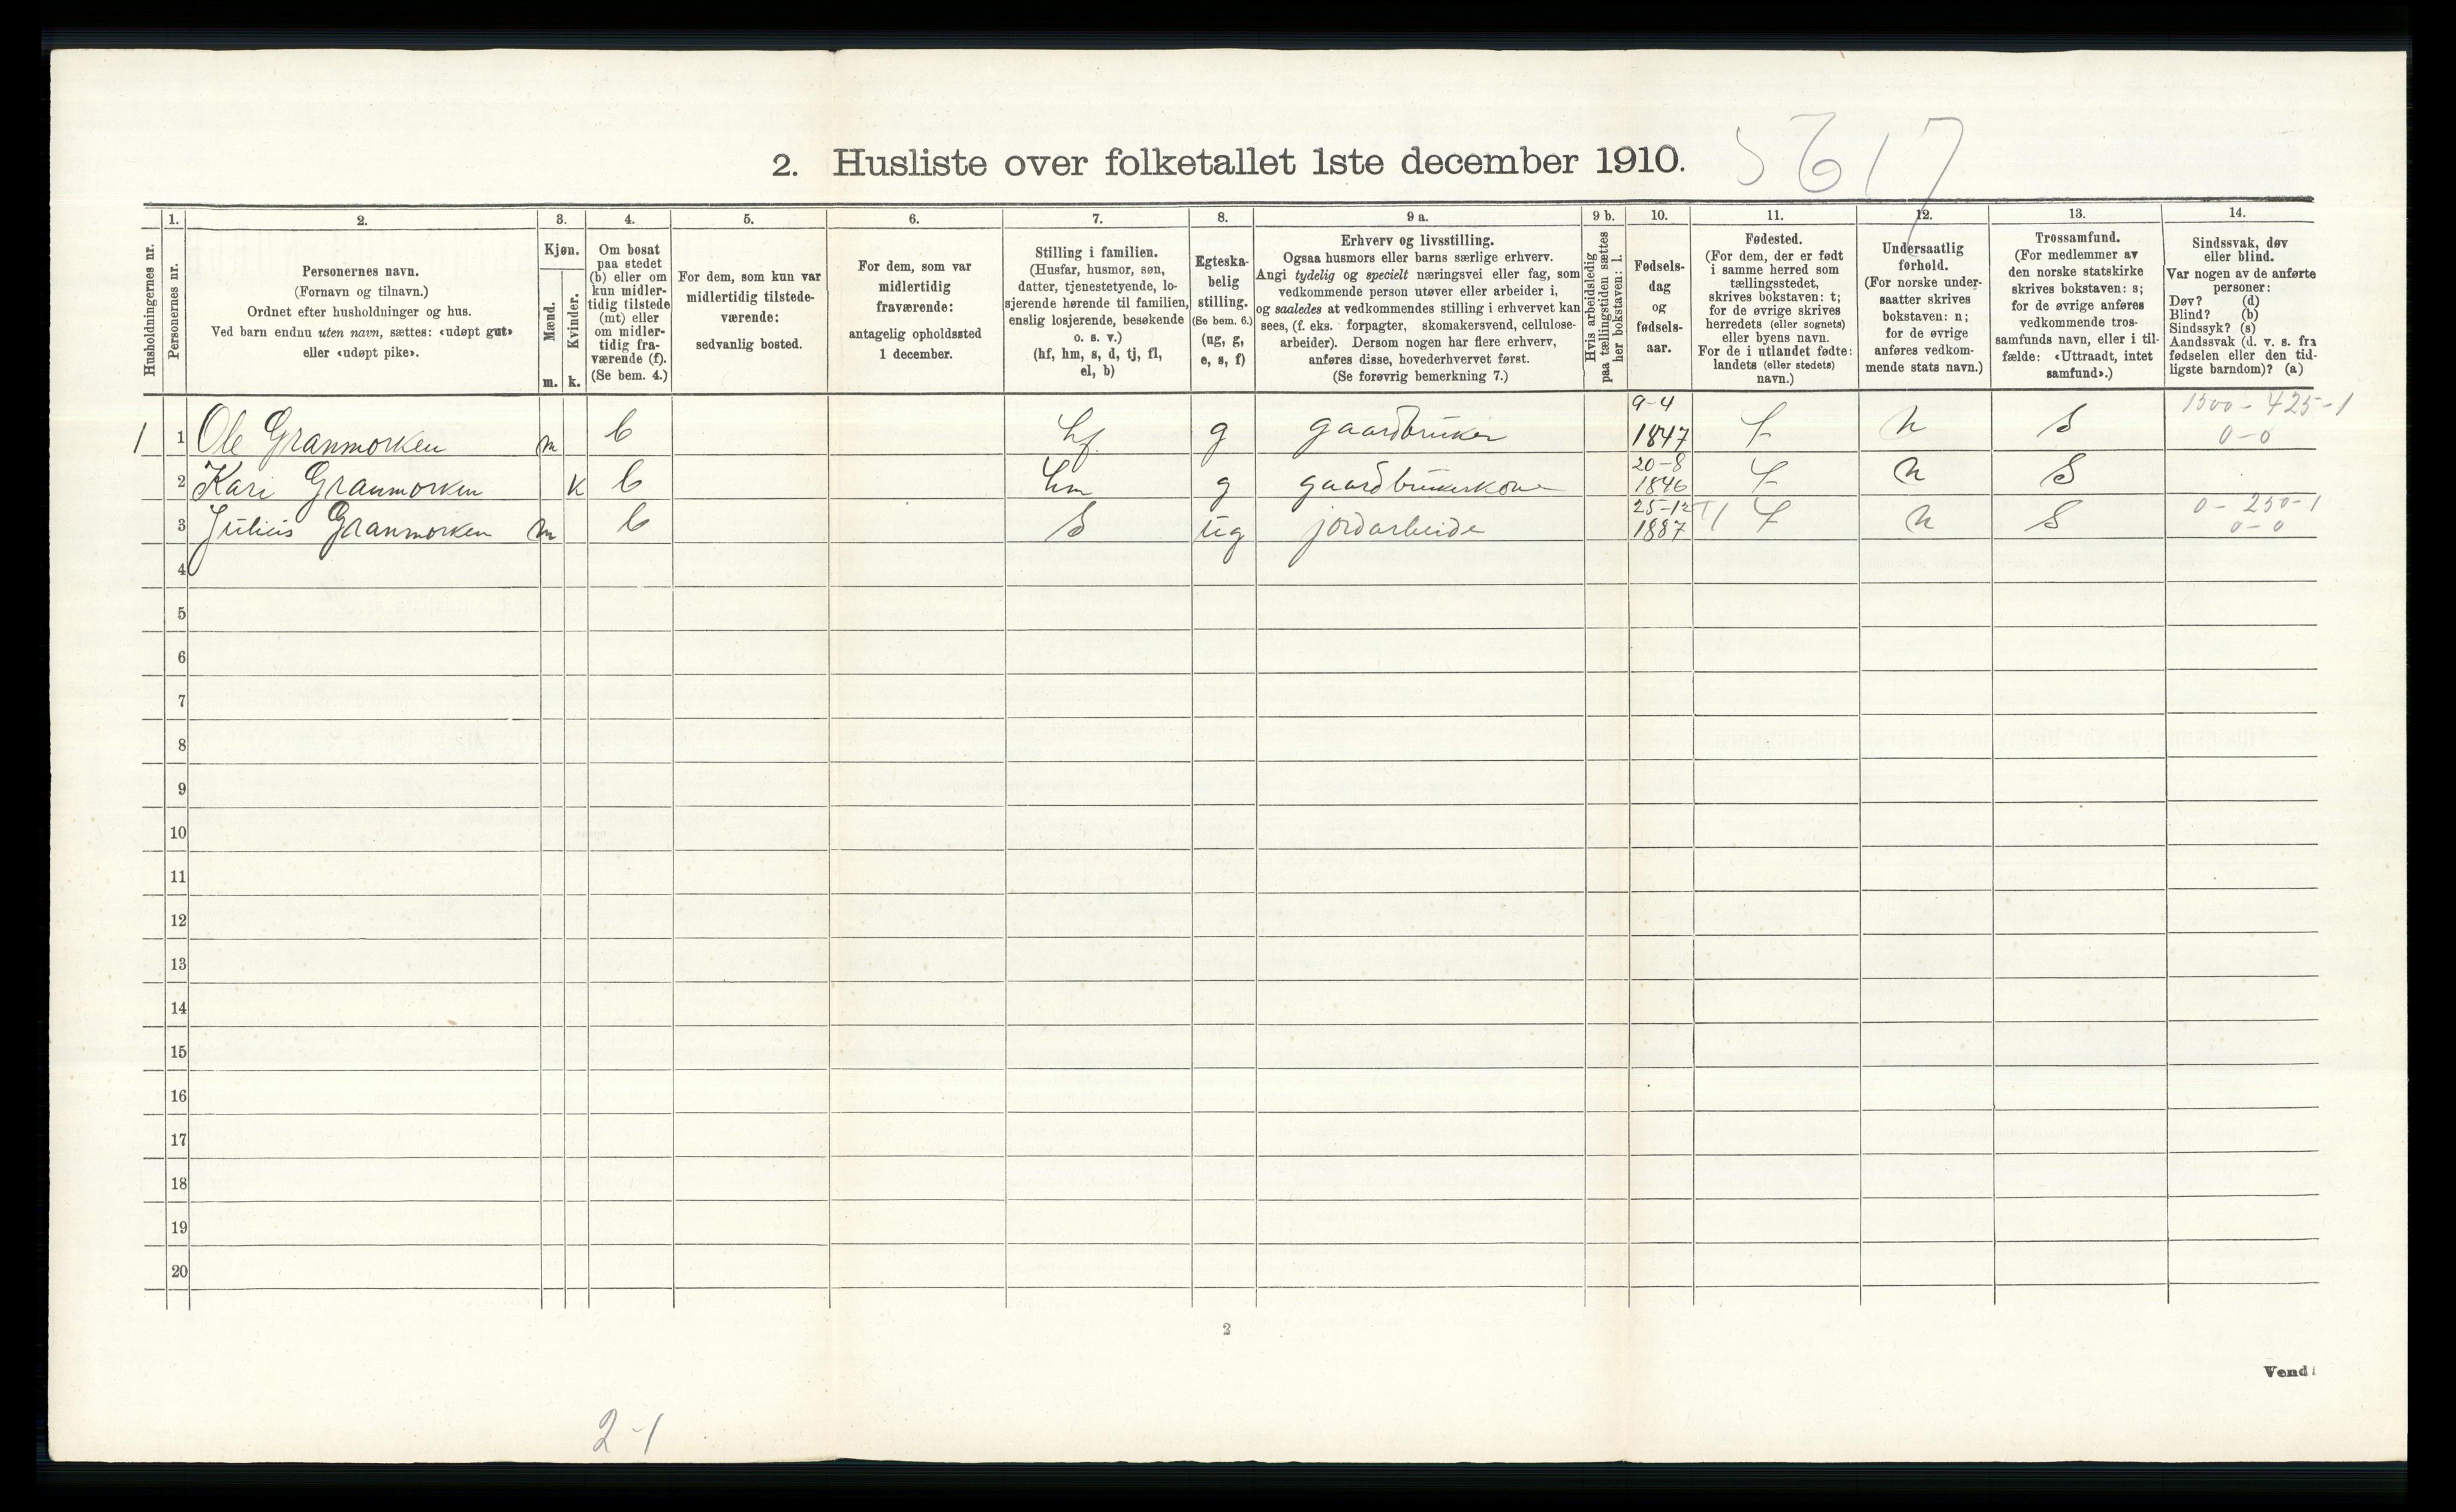 5617
2. Husliste over folketallet 1ste december 1910.
1. 2. 3. 4. 5. 6. 7. 8. 9 a. 9 b. 10. 11. 12. 13. 14.
Husholdningernes nr.
Personernes nr.
Personernes navn.
(Fornavn og tilnavn.)
Ordnet efter husholdninger og hus.
Ved barn endnu uten navn, sættes: «udøpt gut»
eller «udøpt pike».
Kjøn.
Mænd.
Kvinder.
m. k.
Om bosat
paa stedet
(b) eller om
kun midler-
tidig tilstede
(mt) eller
om midler-
tidig fra-
værende (f).
(Se bem. 4.)
For dem, som kun var
midlertidig tilstede-
værende:
sedvanlig bosted.
For dem, som var
midlertidig
fraværende:
antagelig opholdssted
1 december.
Stilling i familien.
(Husfar, husmor, søn,
datter, tjenestetyende, lo-
sjerende hørende til familien,
enslig losjerende, besøkende
o. s. v.)
(hf, hm, s, d, tj, fl,
el, b)
Egteska-
belig
stilling.
(Se bem. 6.)
(ug, g,
e, s, f)
Erhverv og livsstilling.
Ogsaa husmors eller barns særlige erhverv.
Angi tydelig og specielt næringsvei eller fag, som
vedkommende person utøver eller arbeider i,
og saaledes at vedkommendes stilling i erhvervet kan
sees, (f. eks. forpagter, skomakersvend, cellulose-
arbeider). Dersom nogen har flere erhverv,
anføres disse, hovederhvervet først.
(Se forøvrig bemerkning 7.)
Hvis arbeidsledig
paa tællingstiden sættes
her bokstaven: l.
Fødsels-
dag
og
fødsels-
aar.
Fødested.
(For dem, der er født
i samme herred som
tællingsstedet,
skrives bokstaven: t;
for de øvrige skrives
herredets (eller sognets)
eller byens navn.
For de i utlandet fødte:
landets (eller stedets)
navn.)
Undersaatlig
forhold.
(For norske under-
saatter skrives
bokstaven: n;
for de øvrige
anføres vedkom-
mende stats navn.)
Trossamfund.
(For medlemmer av
den norske statskirke
skrives bokstaven: s;
for de øvrige anføres
vedkommende tros-
samfunds navn, eller i til-
fælde: «Uttraadt, intet
samfund».)
Sindssvak, døv
eller blind.
Var nogen av de anførte
personer:
Døv? (d)
Blind? (b)
Sindssyk? (s)
Aandssvak (d. v. s. fra
fødselen eller den tid-
ligste barndom)? (a)
9-4 1500 - 425-1
1 1 Ole Granmorken m b hf. g gaardbruker 1847 t n S 0-0
20-8
2 Kari Granmorken k b hm g gaardbrukerkone 1846 t n S
25-12 0 - 250-1
3 Julius Granmorken m b S ug jordarbeide 1887 t n S 0-0
4
5
6
7
8
9
10
11
12
13
14
15
16
17
18
19
20
2
Vend!
2-1